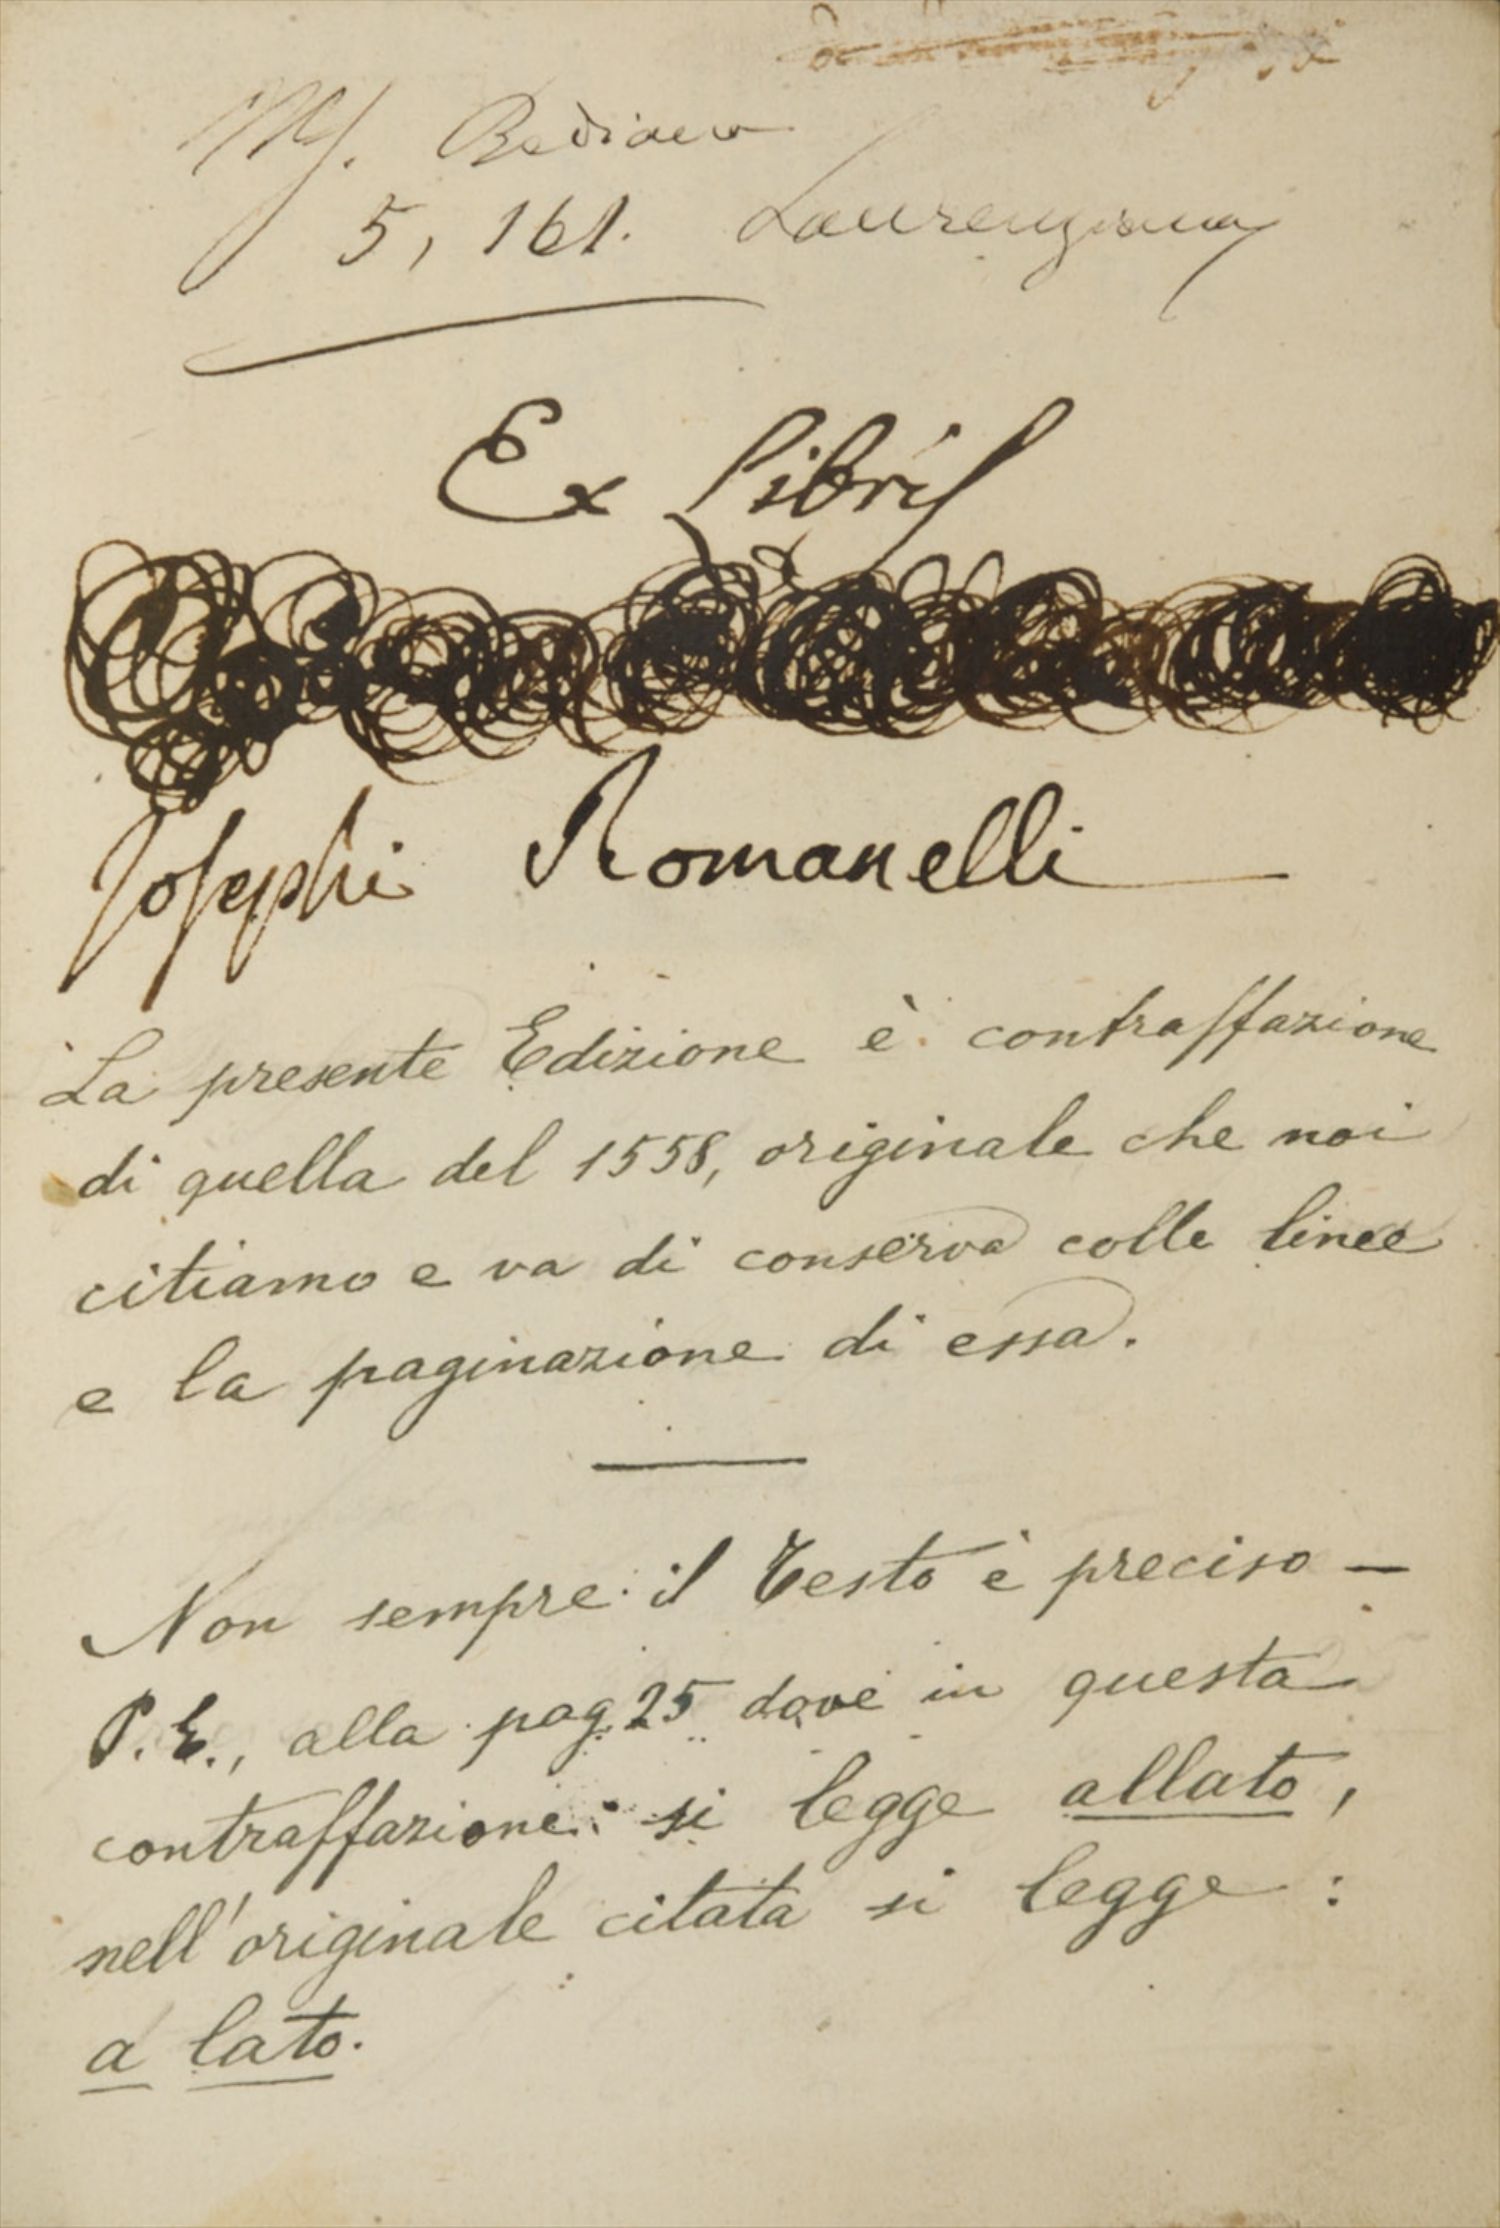 Ms. Rediano
5, 161. Laurenziana
Ex libris
Josephi Romanelli
La presente Edizione è contraffazione
di quella del 1558, originale che noi
citiamo e va di conserva colle linee
e la paginazione di essa.
Non sempre il Testo è preciso –
P. E., alla pag. 25 dove in questa
contraffazione si legge allato,
nell'originale citata si legge:
a lato.